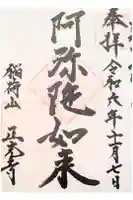 奉拝 令和元年十一月七日
阿弥陀如来
稲荷山
正太寺